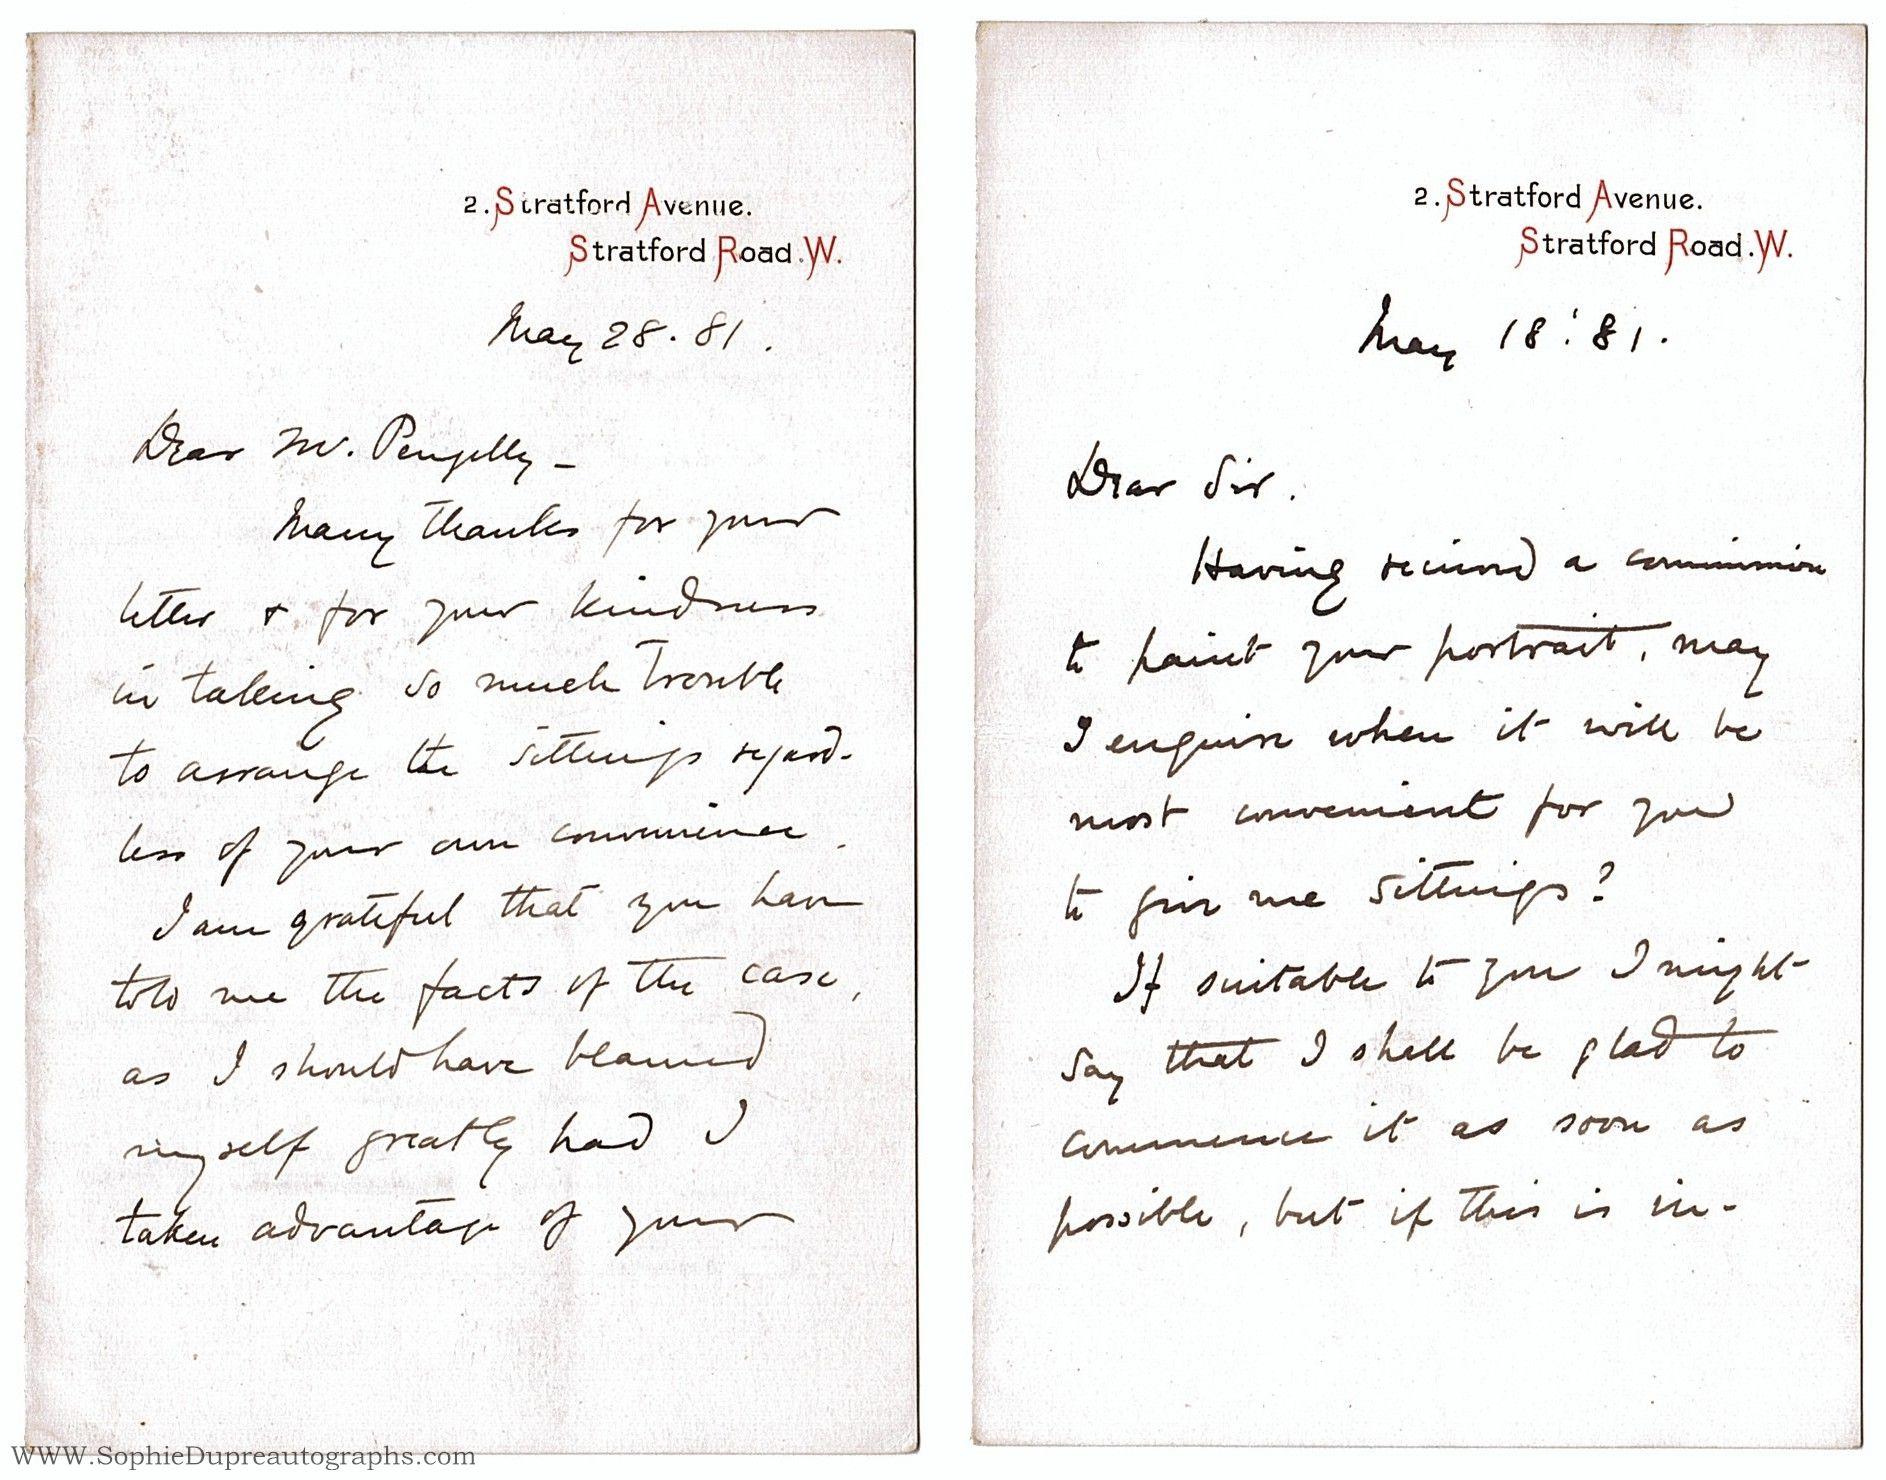 2. Stratford Avenue.
Stratford Road. W.
May 28. 81.
Dear Mr. Pengelly –
Many thanks for your
letter & for your kindness
in taking so much trouble
to arrange the sittings regard-
less of your own convenience.
I am grateful that you have
told me the facts of the case,
as I should have blamed
myself greatly had I
taken advantage of your
2. Stratford Avenue.
Stratford Road. W.
May 18: 81.
Dear Sir.
Having received a commission
to paint your portrait, may
I enquire when it will be
most convenient for you
to give me sittings?
If suitable to you I might
say that I shall be glad to
commence it as soon as
possible, but if this is in-
WWW.SophieDupreautographs.com